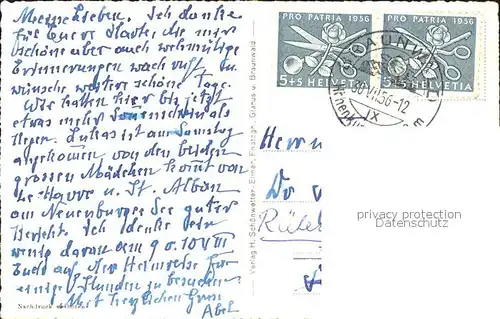 Meine Lieben. Ich danke
für Euere Karte, die mir
schöne aber auch wehmütige
Erinnerungen wach ruft. Ich
wünsche weiter schöne Tage.
Wir hatten hier bis jetzt
etwas mehr Sonnenschein als
Regen. Lukas ist am Samstag
angekommen von den beiden
grossen Mädchen kommt von
Le Havre u. St. Alban
am Neuenburger See guter
Bericht. Ich denke ein
wenig daran am 9 o. 10 VIII
Euch auf der Heimreise für
einige Stunden zu besuchen
Mit herzlichem Gruss
Abel
Nachdruck verboten
Verlag H. Schönwetter-Elmer, Photogr., Glarus u. Braunwald
PRO PATRIA 1956
5+5 HELVETIA
PRO PATRIA 1956
HELVETIA
BRAUNWALD
30.VII.56-12
IX
Herrn
Dr
privacy protection
www.oldthing.de